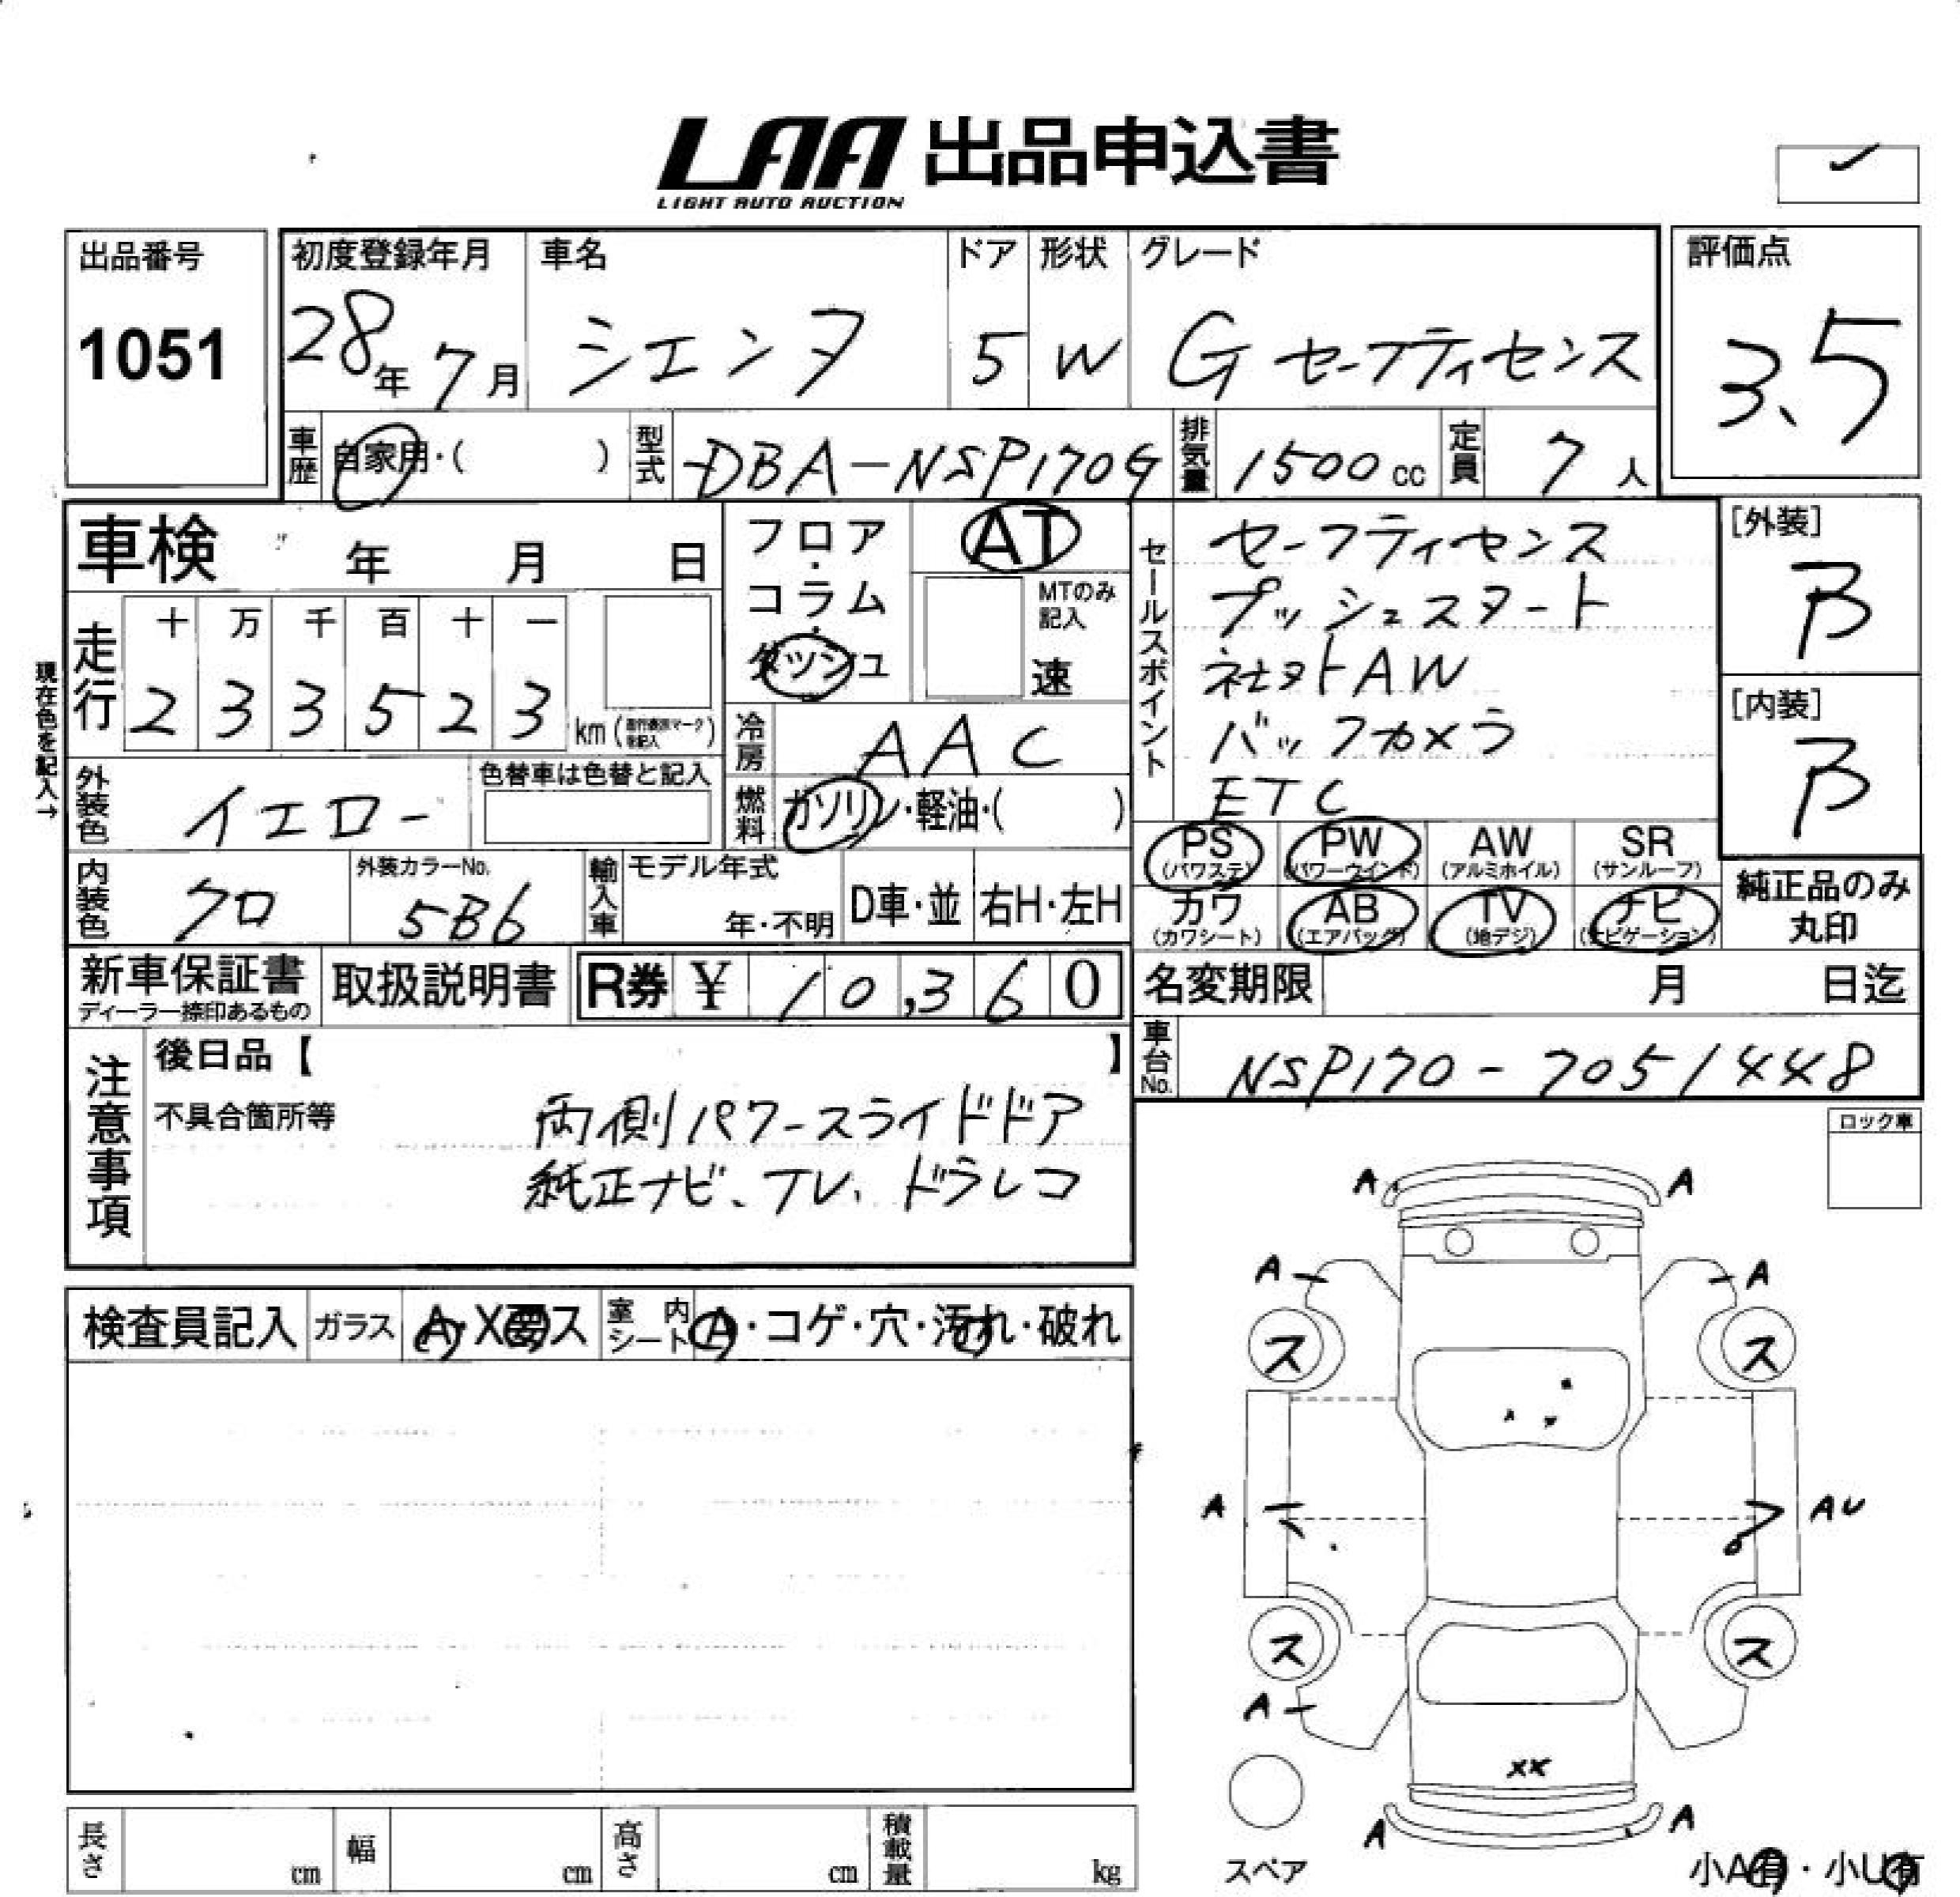 LAA 出品申込書
LIGHT AUTO AUCTION
出品番号
1051
初度登録年月
28年 7月
車名
シエンタ
ドア
5
形状
W
グレード
G セーフティセンス
評価点
3.5
車歴 自家用・( )
型式 DBA-NSP170G
排気量 1500cc
定員 7人
車検 年 月 日
走行
十 万 千 百 十 一
2 3 3 5 2 3 km
現在色を記入→
外装色 イエロー
色替車は色替と記入
内装色 クロ
外装カラーNo.
5B6
フロア・コラム・ダッシュ
AT
MTのみ記入
速
冷房 AAC
燃料 ガソリン・軽油・( )
輸入車
モデル年式
年・不明
D車・並
右H・左H
セールスポイント
セーフティセンス
プッシュスタート
社外AW
バックカメラ
ETC
[外装]
B
[内装]
B
PS (パワステ)
PW (パワーウインド)
AW (アルミホイル)
SR (サンルーフ)
カワ (カワシート)
AB (エアバッグ)
TV (地デジ)
ナビ (ナビゲーション)
純正品のみ丸印
新車保証書
ディーラー捺印あるもの
取扱説明書
R券 ¥ 10,360
名変期限 月 日迄
車台No. NSP170-7051448
注意事項
後日品【 】
不具合箇所等
両側パワースライドドア
純正ナビ、TV、ドラレコ
ロック車
検査員記入
ガラス A・X要ス
室内シート A・コゲ・穴・汚れ・破れ
A A
A A
ス ス
A AU
ス ス
A
XX
A A
スペア
小A有・小U有
長さ cm
幅 cm
高さ cm
積載量 kg